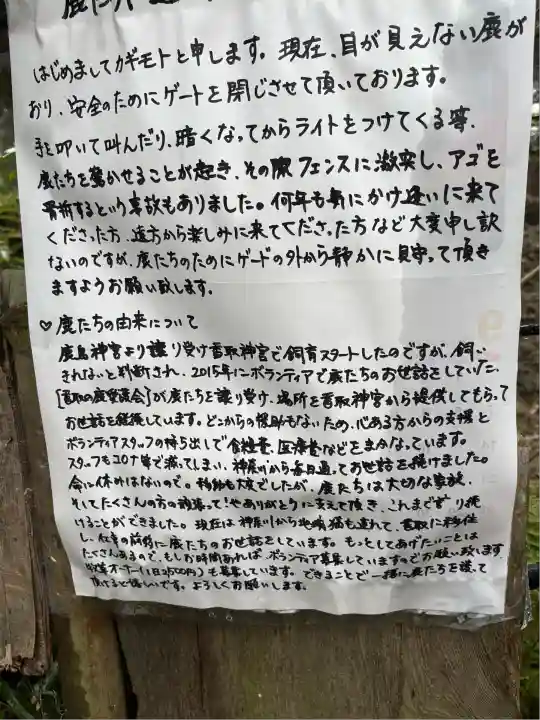 はじめましてカギモトと申します。現在、目が見えない鹿が
おり、安全のためにゲートを閉じさせて頂いております。
手を叩いて叫んだり、暗くなってからライトをつけてくる等、
鹿たちを驚かせることが起き、その際フェンスに激突し、アゴを
骨折するという事故もありました。何年も気にかけ逢いに来て
くださった方、遠方から楽しみに来てくださった方など大変申し訳
ないのですが、鹿たちのためにゲートの外から静かに見守って頂き
ますようお願い致します。
♡鹿たちの由来について
鹿島神宮より譲り受け香取神宮で飼育スタートしたのですが、飼い
きれないと判断され、2015年にボランティアで鹿たちのお世話をしていた、
[香取の鹿愛護会]が鹿たちを譲り受け、場所を香取神宮から提供してもらって
お世話を継続しています。どこからの援助もないため、心ある方からの支援と
ボランティアスタッフの持ち出しで食糧費、医療費などをまかなっています。
スタッフもコロナ等で減ってしまい、神奈川から毎日通ってお世話を続けました。
命に休みはないので。移動も大変でしたが、鹿たちは大切な家族、
そしてたくさんの方の頑張って!やありがとうに支えて頂き、これまで守り続
けることができました。現在は神奈川から地域猫も連れて、香取に移住
し、鹿たちのお世話をしています。もっとしてあげたいことは
たくさんあるので、もしお時間あれば、ボランティア募集していますのでお願い致します
(1日2500円)も募集しています。できることで一緒に鹿たちを護って
頂けると嬉しいです。よろしくお願いします。